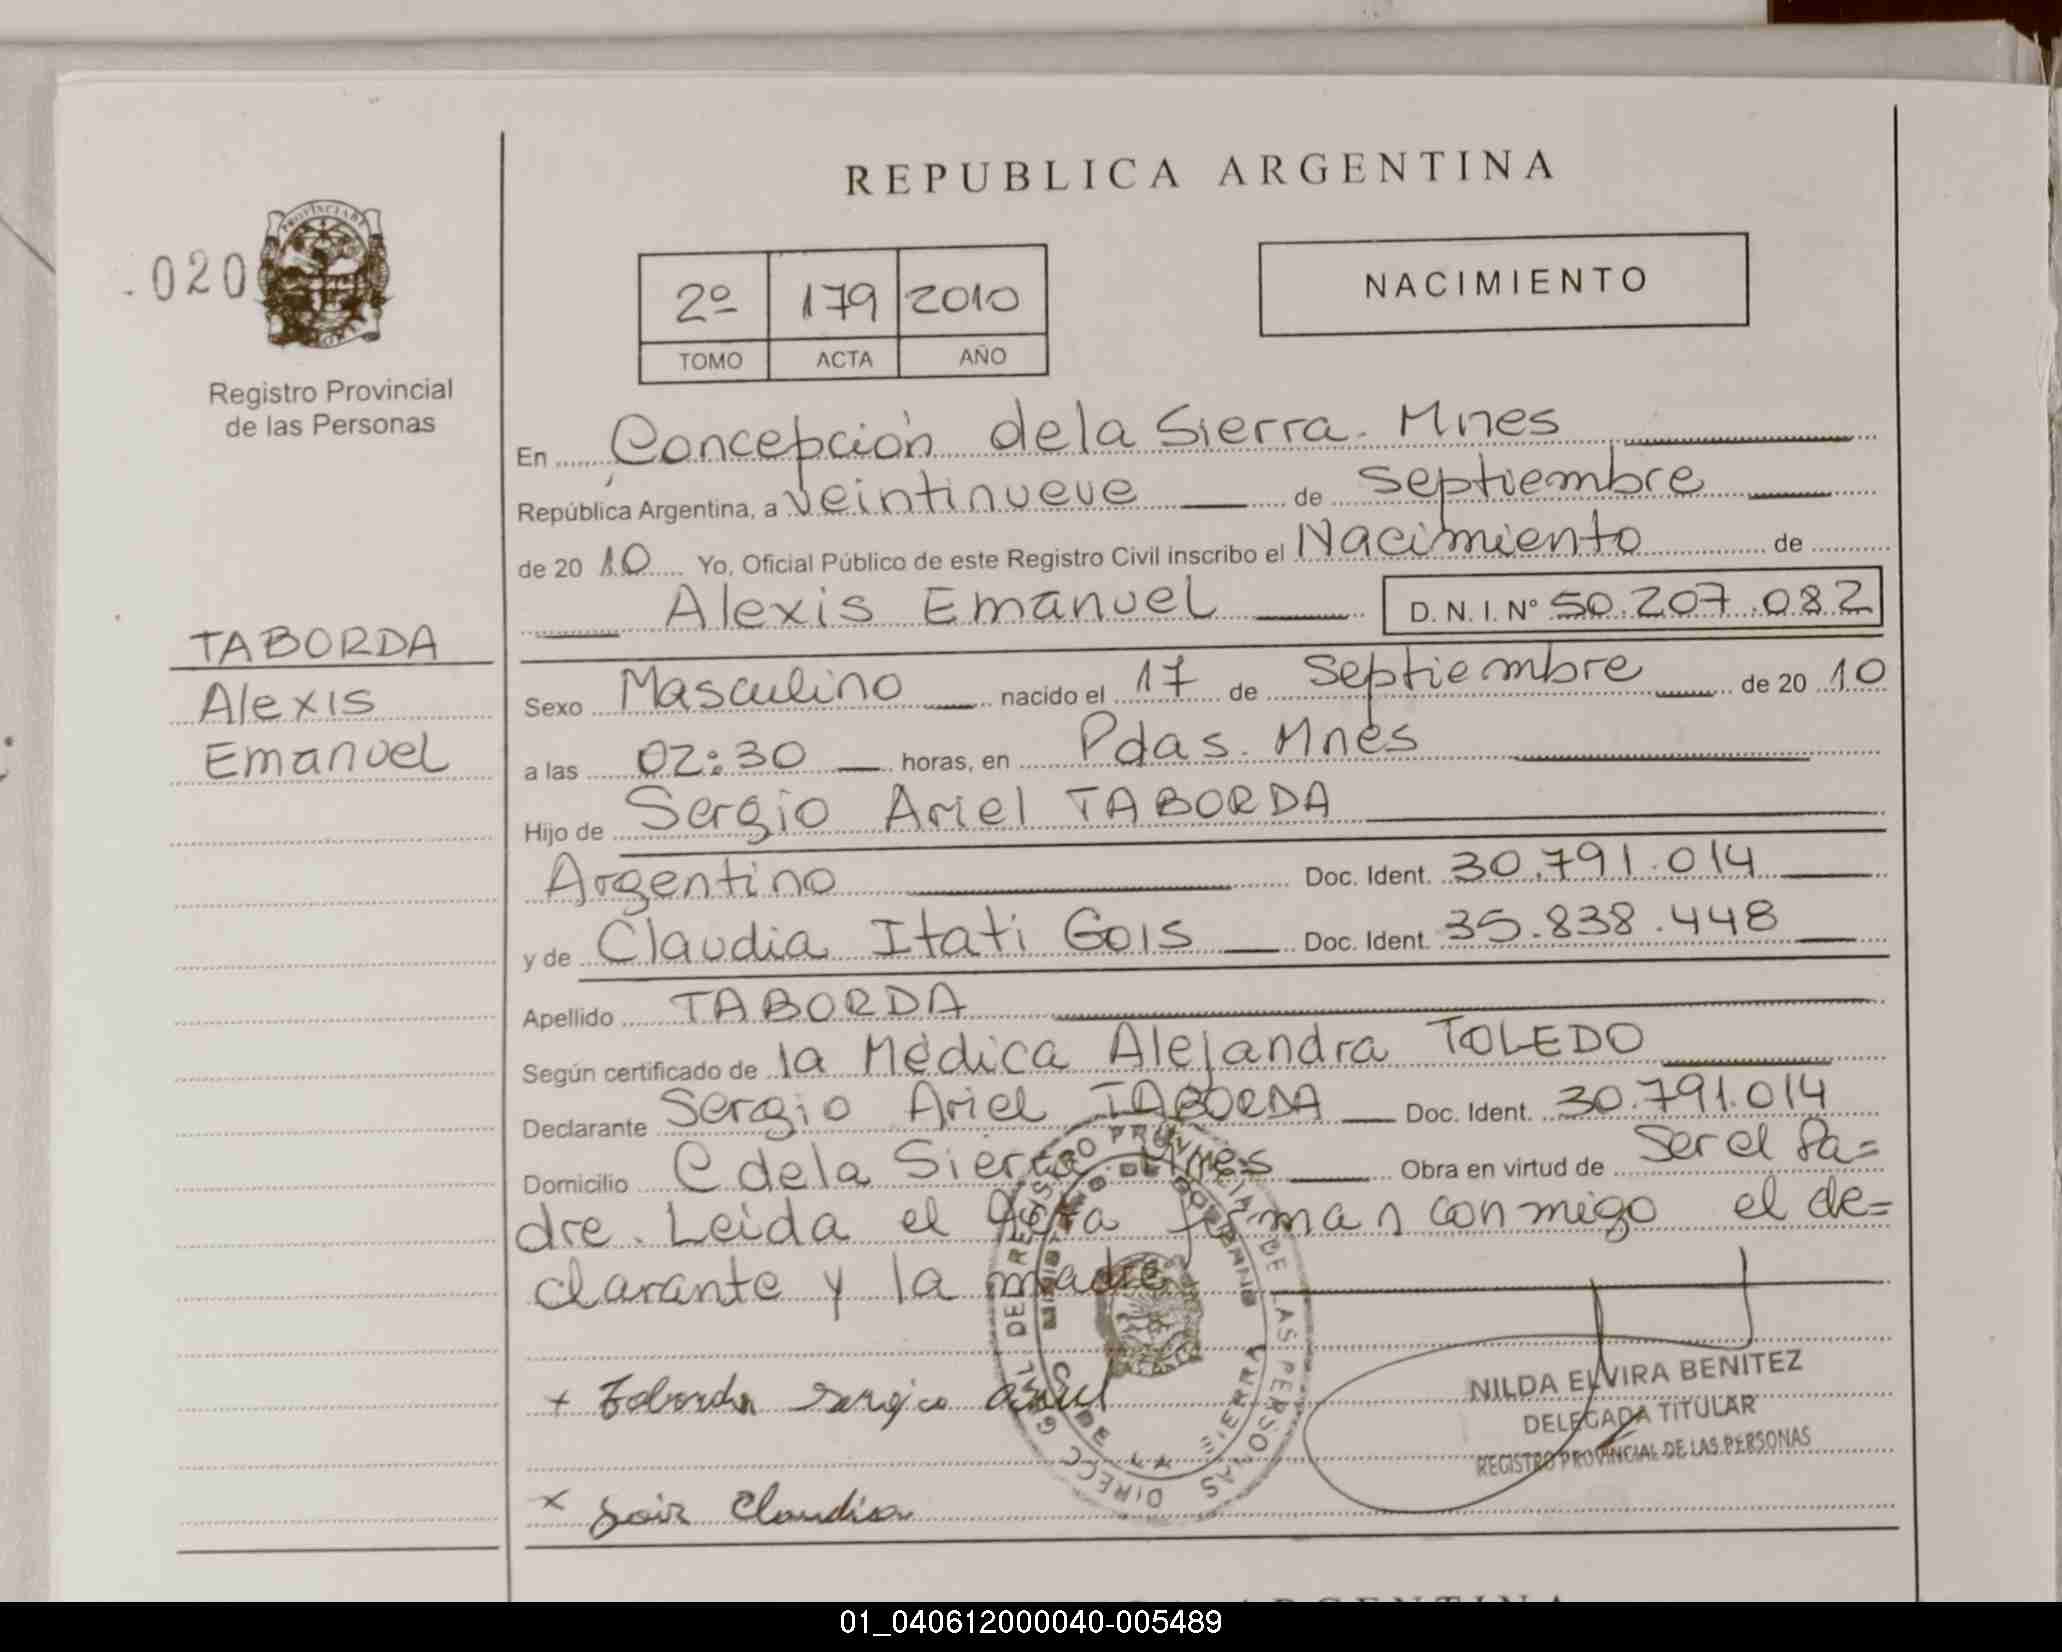 REPUBLICA ARGENTINA
.020
PROVINCIA DE
2º 179 2010
TOMO ACTA AÑO
NACIMIENTO
Registro Provincial
de las Personas
TABORDA
Alexis
Emanuel
En Concepción de la Sierra. Mnes
República Argentina, a veintinueve de septiembre
de 2010 Yo, Oficial Público de este Registro Civil inscribo el Nacimiento de
Alexis Emanuel D.N.I.Nº 50.207.082
Sexo Masculino nacido el 17 de Septiembre de 2010
a las 02:30 horas, en Pdas. Mnes
Hijo de Sergio Ariel TABORDA
Argentino Doc. Ident. 30.791.014
y de Claudia Itati Gois Doc. Ident. 35.838.448
Apellido TABORDA
Según certificado de la Médica Alejandra TOLEDO
Declarante Sergio Ariel TABORDA Doc. Ident. 30.791.014
Domicilio C de la Sierra Mnes Obra en virtud de Ser el Pa=
dre. Leida el Acta firman conmigo el de=
clarante y la madre
DIRECC GRAL DE REGISTRO PROVINCIAL DE LAS PERSONAS
MINISTERIO DE GOBIERNO
C. DE LA SIERRA
+ Taborda Sergio Ariel
x Gois Claudia
NILDA ELVIRA BENITEZ
DELEGADA TITULAR
REGISTRO PROVINCIAL DE LAS PERSONAS
01_040612000040-005489